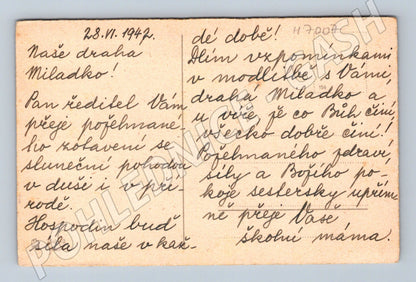 28.VI.1942.
Naše drahá
Miladko!
Pan ředitel Vám
přeje požehnané-
ho zotavení se
sluneční pohodou
v duši i v pří-
rodě.
Hospodin buď
síla naše v kaž-
H7007
dé době!
Dlím vzpomínkami
v modlitbě s Vámi,
drahá Miladko a
u víře je co Bůh činí,
všecko dobře činí!
Požehnaného zdraví,
síly a Božího po-
koje sestersky upřím-
ně přeje Vaše
školní máma.
POHLEDNICE CASH